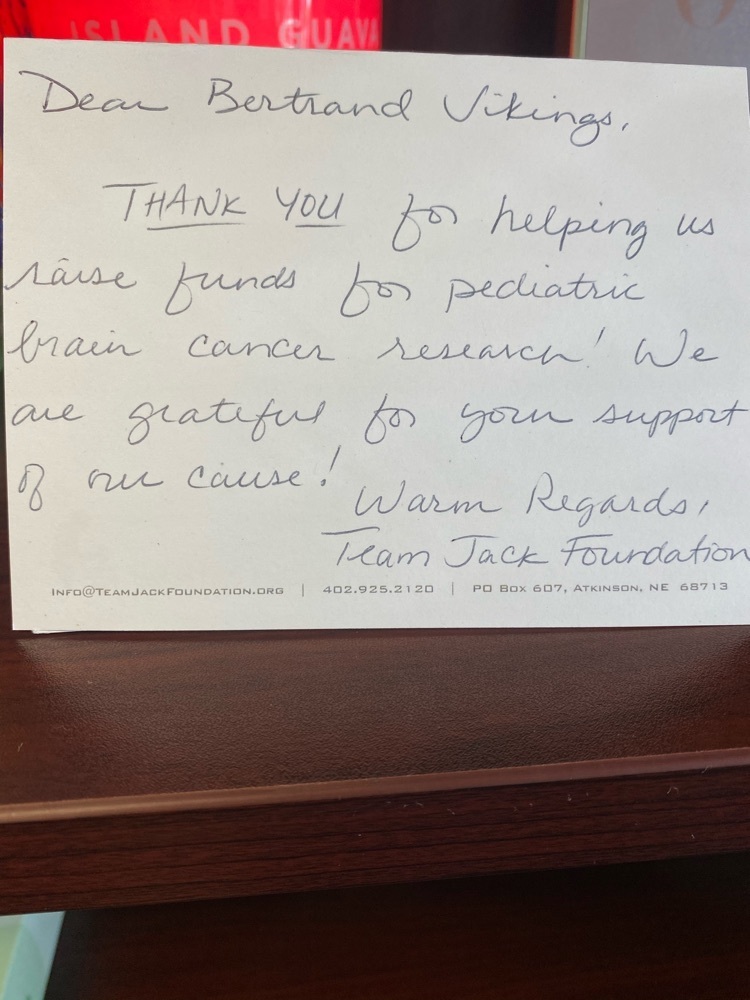 ISLAND GUAVA
Dear Bertrand Vikings,
THANK YOU for helping us
raise funds for pediatric
brain cancer research! We
are grateful for your support
of our cause!
Warm Regards,
Team Jack Foundation
INFO@TEAMJACKFOUNDATION.ORG | 402.925.2120 | PO BOX 607, ATKINSON, NE 68713